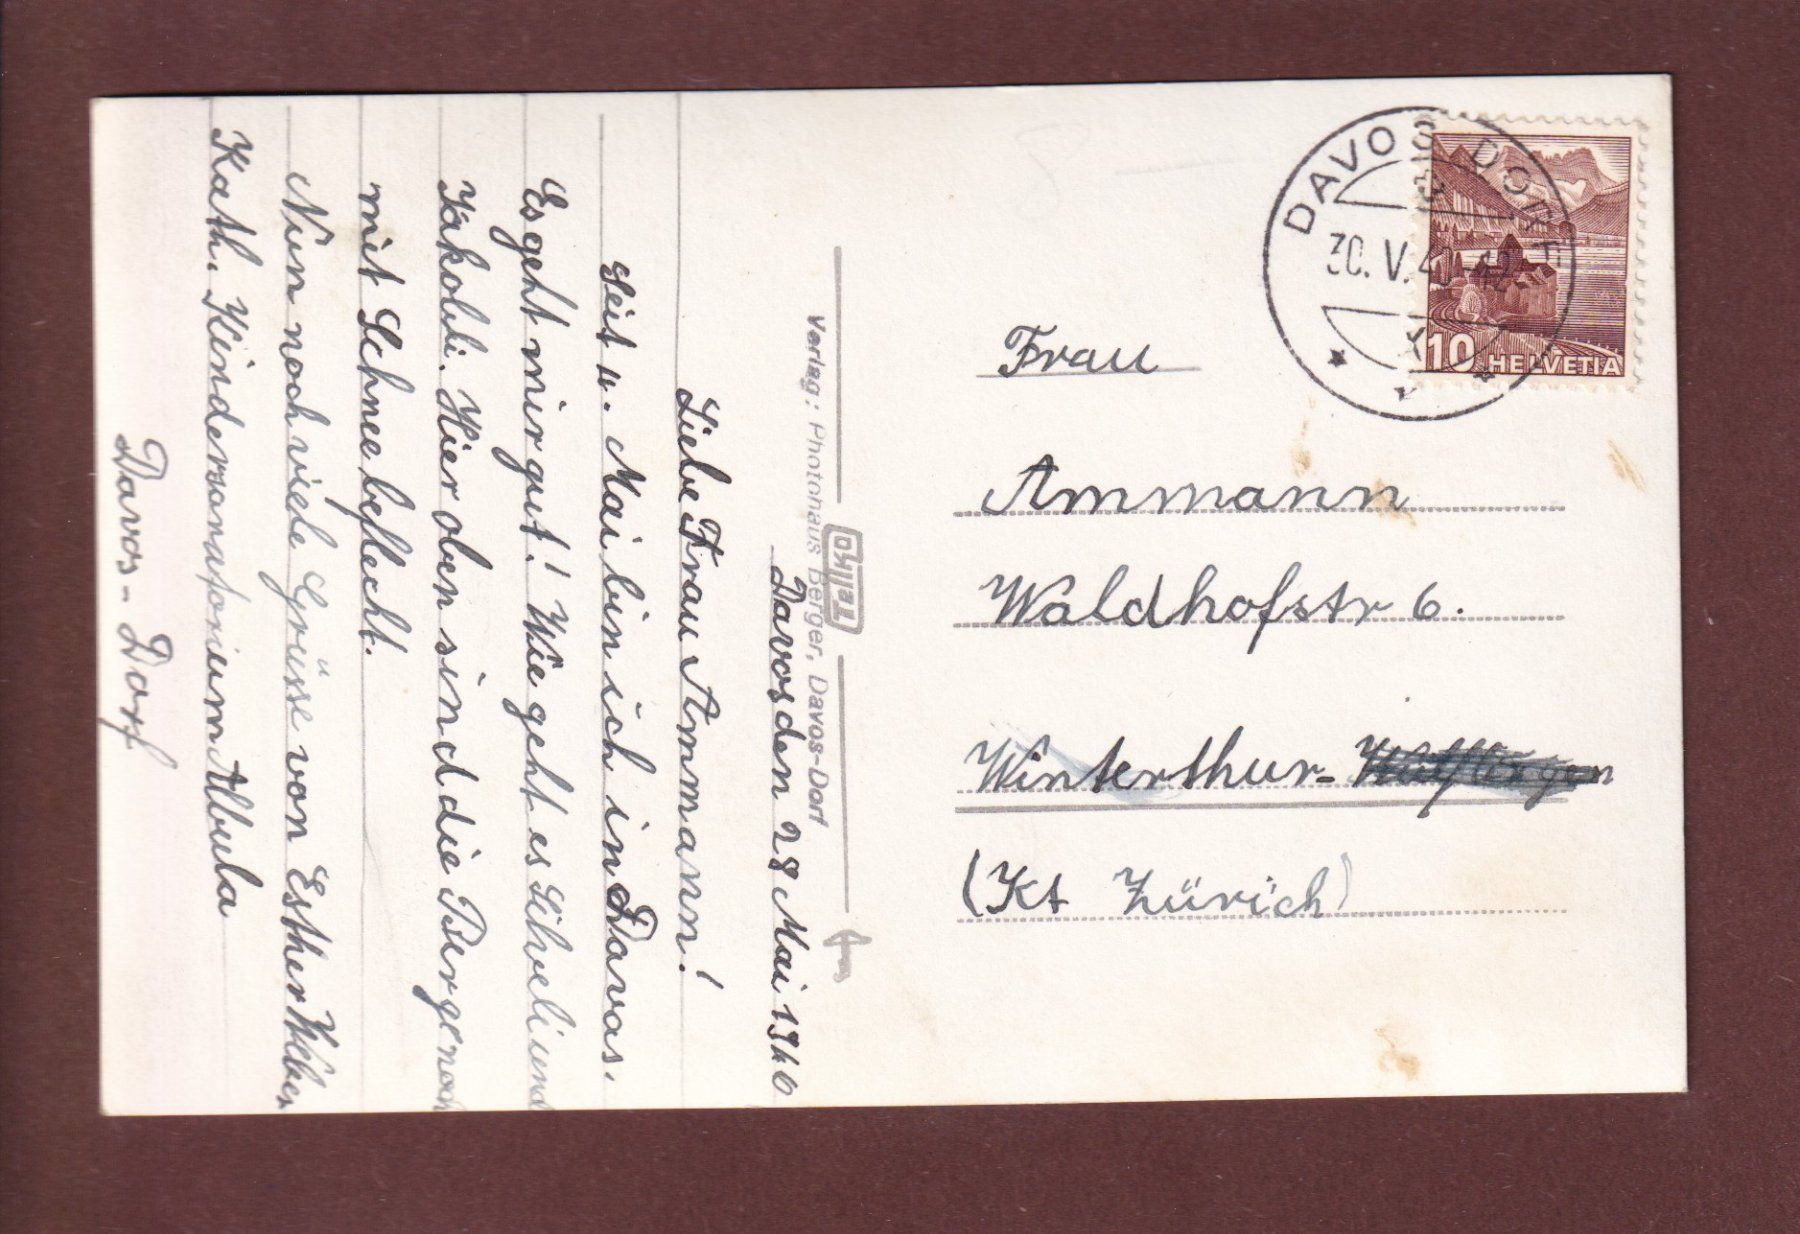 Davos den 28 Mai 1940
Liebe Frau Ammann!
Seit 4. Mai bin ich in Davos.
Es geht mir gut! Wie geht es Silveli und
Jakobli. Hier oben sind die Berge noch
mit Schnee befleckt.
Nun noch viele Grüsse von Esther Weber
Kath. Kindersanatorium Albula
Davos-Dorf
Verlag: Photohaus Berger, Davos-Dorf
DAVOS DORF
30. V. 40-12
10 HELVETIA
Frau
Ammann
Waldhofstr 6.
Winterthur-Wülflingen
(Kt Zürich)
8.—